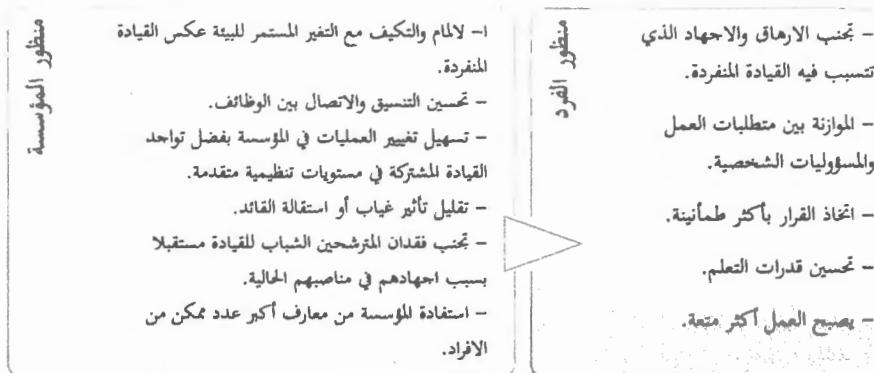 منظور الفرد
– تجنب الارهاق والاجهاد الذي
تتسبب فيه القيادة المنفردة.
– الموازنة بين متطلبات العمل
والمسؤوليات الشخصية.
– اتخاذ القرار بأكثر طمأنينة.
– تحسين قدرات التعلم.
– يصبح العمل أكثر متعة.
منظور المؤسسة
ا– لالمام والتكيف مع التغير المستمر للبيئة عكس القيادة
المنفردة.
– تحسين التنسيق والاتصال بين الوظائف.
– تسهيل تغيير العمليات في المؤسسة بفضل تواحد
القيادة المشتركة في مستويات تنظيمية متقدمة.
– تقليل تأثير غياب أو استقالة القائد.
– تجنب فقدان المترشحين الشباب للقيادة مستقبلا
بسبب اجهادهم في مناصبهم الحالية.
– استفادة المؤسسة من معارف أكبر عدد ممكن من
الافراد.